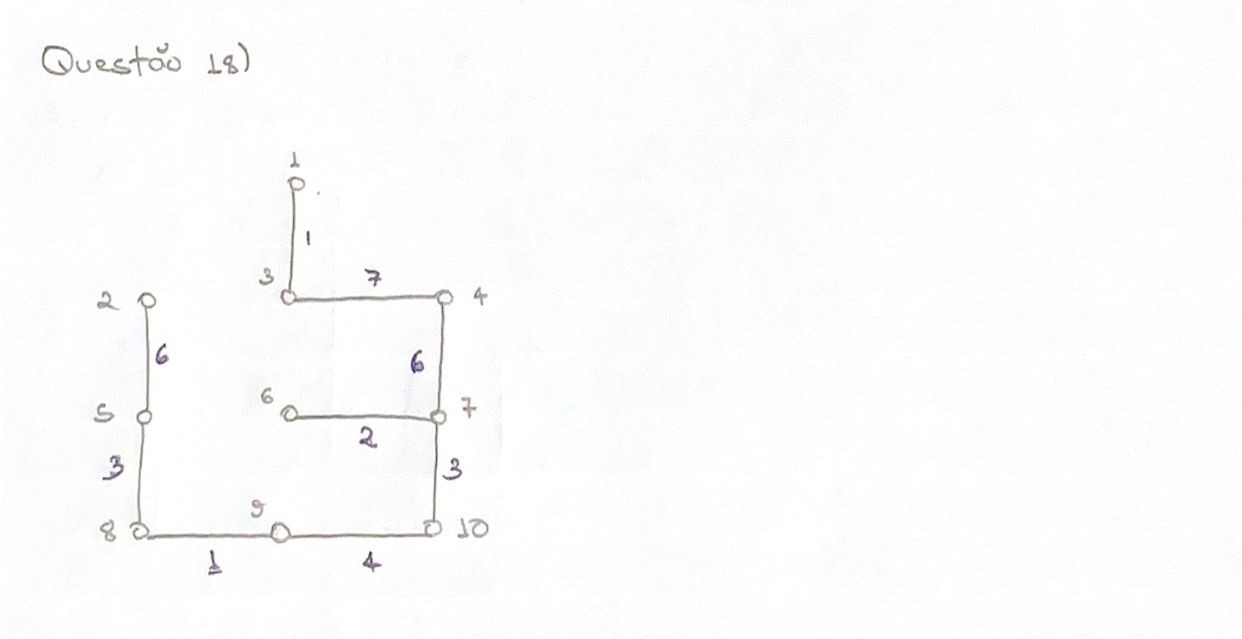 Questão 18)
1
1
3 7
2 4
6 6
6
5 7
2
3 3
9
8 10
1 4